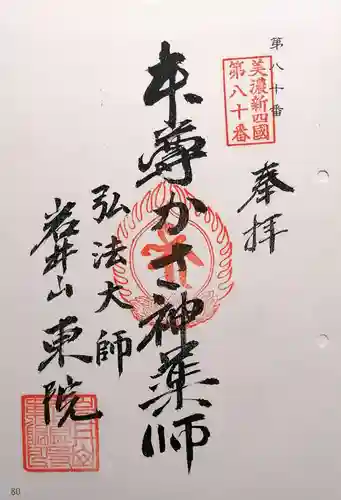 第八十番
美濃新四國
第八十番
奉拝
本尊かさ神薬師
弘法大師
岩井山
東院
80